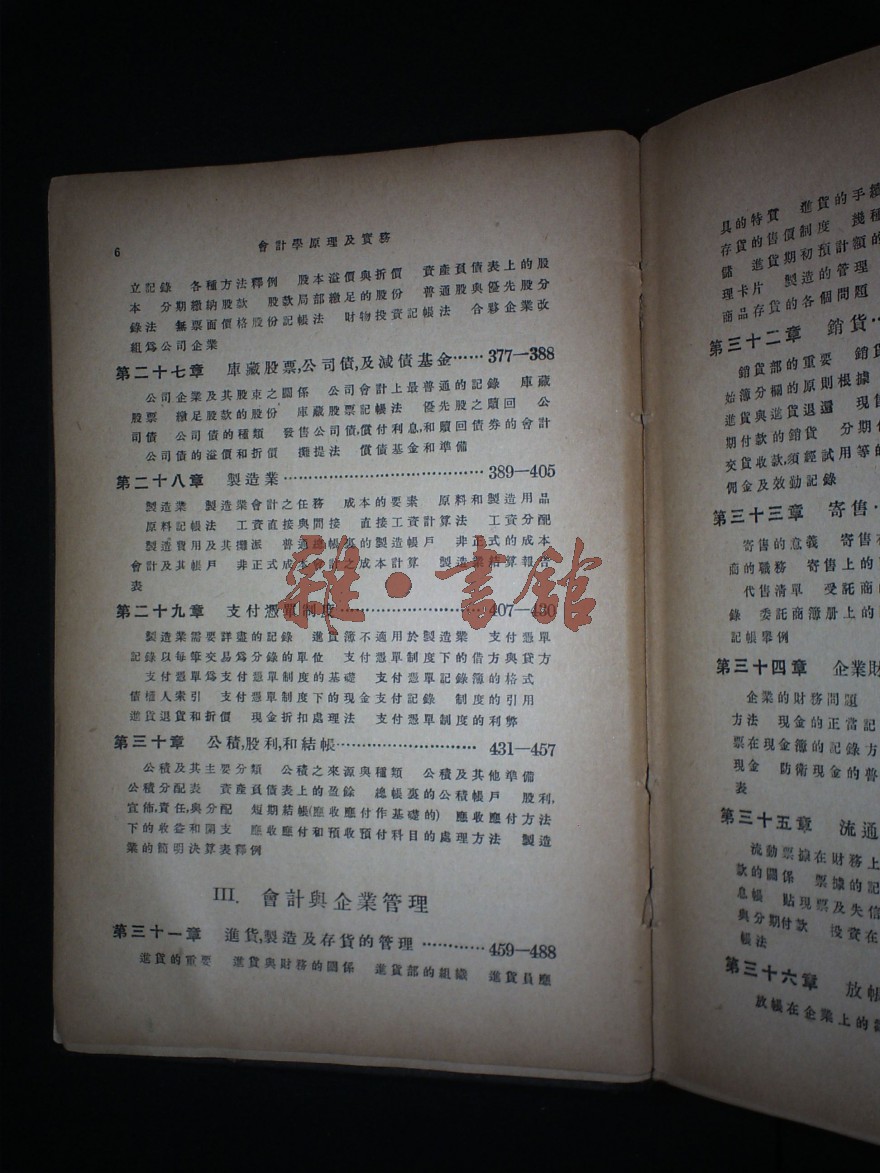 6
會計學原理及實務
立記錄 各種方法釋例 股本溢價與折價 資產負債表上的股
本 分期繳納股款 股款局部繳足的股份 普通股與優先股分
錄法 無票面價格股份記帳法 財物投資記帳法 合夥企業改
組爲公司企業
第二十七章 庫藏股票,公司債,及減債基金……377—388
公司企業及其股東之關係 公司會計上最普通的記錄 庫藏
股票 繳足股款的股份 庫藏股票記帳法 優先股之贖回 公
司債 公司債的種類 發售公司債,償付利息,和贖回債券的會計
公司債的溢價和折價 攤提法 償債基金和準備
第二十八章 製造業……389—405
製造業 製造業會計之任務 成本的要素 原料和製造用品
原料記帳法 工資直接與間接 直接工資計算法 工資分配
製造費用及其攤派 普通總帳裏的製造帳戶 非正式的成本
會計及其帳戶 非正式成本會計之成本計算 製造業結算報告
表
第二十九章 支付憑單制度……407—430
製造業需要詳盡的記錄 進貨簿不適用於製造業 支付憑單
記錄以每筆交易爲分錄的單位 支付憑單制度下的借方與貸方
支付憑單爲支付憑單制度的基礎 支付憑單記錄簿的格式
債權人索引 支付憑單制度下的現金支付記錄 制度的引用
進貨退貨和折價 現金折扣處理法 支付憑單制度的利弊
第三十章 公積,股利,和結帳……431—457
公積及其主要分類 公積之來源與種類 公積及其他準備
公積分配表 資產負債表上的盈餘 總帳裏的公積帳戶 股利,
宣佈,責任,與分配 短期結帳(應收應付作基礎的) 應收應付方法
下的收益和開支 應收應付和預收預付科目的處理方法 製造
業的簡明決算表釋例
III. 會計與企業管理
第三十一章 進貨,製造及存貨的管理……459—488
進貨的重要 進貨與財務的關係 進貨部的組織 進貨員應
具的特質 進貨的手續
存貨的售價制度 幾種
儲 進貨期初預計額的
理卡片 製造的管理
商品存貨的各個問題
第三十二章 銷貨…
銷貨部的重要 銷貨
始簿分欄的原則根據
進貨與進貨退還 現
期付款的銷貨 分期
交貨收款,須經試用等的
佣金及效勤記錄
第三十三章 寄售…
寄售的意義 寄售
商的職務 寄售上的
代售清單 受託商的
錄 委託商簿册上的
記帳舉例
第三十四章 企業財
企業的財務問題
方法 現金的正當記
票在現金簿的記錄方
現金 防衛現金的普
表
第三十五章 流通
流動票據在財務上
款的關係 票據的記
息帳 貼現票及失信
與分期付款 投資在
帳法
第三十六章 放帳
放帳在企業上的
雜·書館